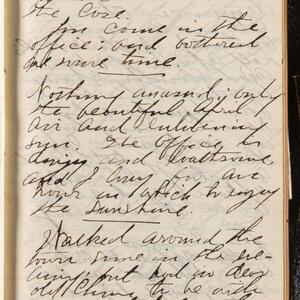 the
Jim come in the
office; and bothered
me some time.
Nothing unusual; only
the beautiful April
air and enlivening
sun. The office is
dingy and loathsome
and I long for an
hour in which to enjoy
the sunshine.
Walked around the
town some in the
but had no dear
old to be with